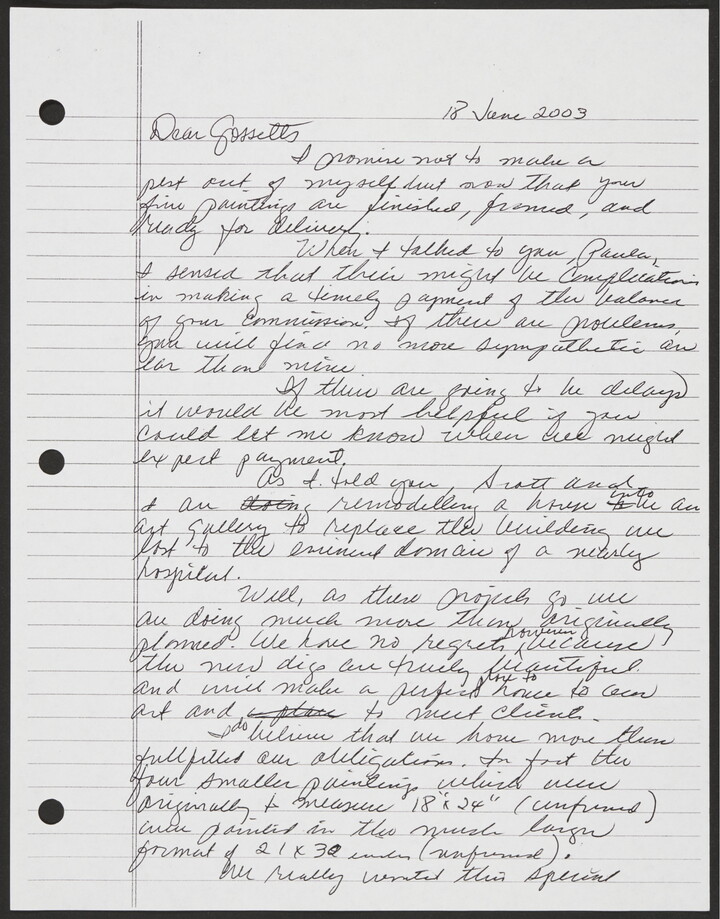 18 June 2003
Dear Gossetts
I promise not to make a
pest out of myself but now that your
five paintings are finished, framed, and
ready for delivery.
When I talked to you, Paula,
I sensed that their might be complications
in making a timely payment of the balance
of your commission. If there are problems,
you will find no more sympathetic an
ear than mine.
If there are going to be delays
it would be most helpful if you
could let me know when we might
expect payment.
As I told you, Scott and
I are doing remodelling a house to into be an
art gallery to replace the building we
lost to the eminent domain of a nearby
hospital.
Well, as these projects go we
are doing much more than originally
planned. We have no regrets, however because
the new digs are truely beautiful
and will make a perfect place to house to our
art and a place to meet clients.
I do believe that we have more then
fullfilled our obligations. In fact the
four smaller paintings which were
originally to measure 18" x 24" (unframed)
were painted in the much larger
format of 21 x 32 inches (unframed).
We really wanted this special